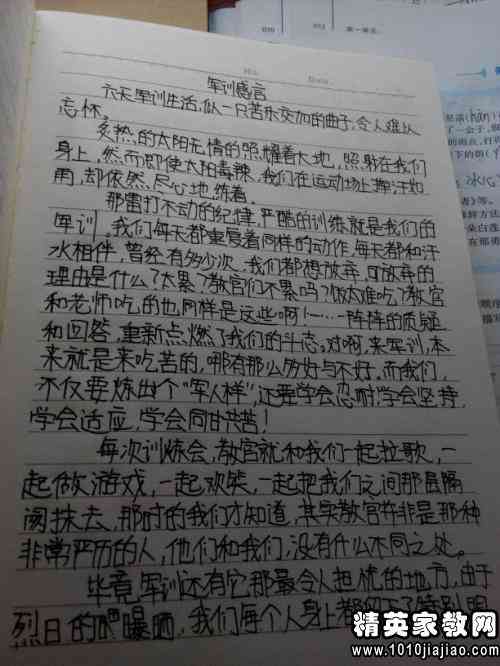 军训感言
六天军训生活,似一只苦乐交加的曲子,令人难以
忘怀。
炙热的太阳无情的照耀着大地,照射在我们
身上,然而即使太阳毒辣,我们在运动场上挥汗如
雨,却依然尽心地练着。
那雷打不动的纪律,严酷的训练就是我们的
军训。我们每天都重复着同样的动作,每天都和汗
水相伴,曾经有多少次,我们都想放弃,可放弃的
理由是什么?太累?教官们不累吗?做太难吃?教官
和老师吃的也同样是这些啊!……一阵阵的质疑
和回答,重新点燃了我们的斗志,对啊,来军训,本
来就是来吃苦的,哪有那么多好与不好,而我们,
不仅要炼出个“军人样”,还要学会忍耐,学会坚持,
学会适应,学会同甘共苦!
每次训练会,教官就和我们一起拉歌,一
起做游戏,一起欢笑,一起把我们之间那层隔
阂抹去,那时的我们才知道,其实教官并非是那种
非常严厉的人,他们和我们,没有什么不同之处。
毕竟,军训还有它那最令人担忧的地方,由于
烈日的曝晒,我们每个人身上都
精英家教网
www.1010jiajiao.com